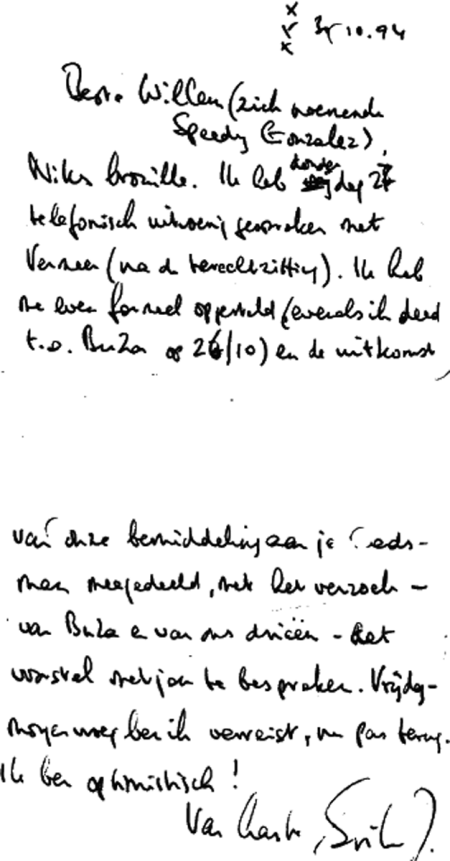 10.94
Beste Willem (zich noemende
Speedy Gonzalez),
Niks brouille. Ik heb donderdag 27
telefonisch uitvoerig gesproken met
Vermeer (na de terechtzitting). Ik heb
me even formeel opgesteld (evenals ik deed
t.o. BuZa op 26/10) en de uitkomst
van onze bemiddeling aan je raads-
man meegedeeld, met het verzoek -
van BuZa en van ons drieën - het
voorstel met jou te bespreken. Vrijdag-
morgenvroeg ben ik verreisd, nu pas terug.
Ik ben optimistisch!
Van harte,